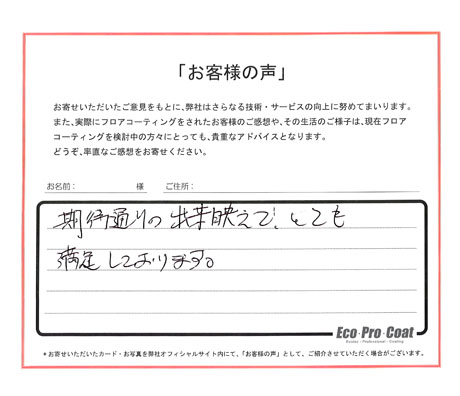 「お客様の声」
お寄せいただいたご意見をもとに、弊社はさらなる技術・サービスの向上に努めてまいります。
また、実際にフロアコーティングをされたお客様のご感想や、その生活のご様子は、現在フロア
コーティングを検討中の方々にとっても、貴重なアドバイスとなります。
どうぞ、率直なご感想をお寄せください。
お名前： 様 ご住所：
期待通りの出来映えで、とても
満足しております。
Eco・Pro・Coat
Ecolex - Professional - Coating
＊お寄せいただいたカード・お写真を弊社オフィシャルサイト内にて、「お客様の声」として、ご紹介させていただく場合がございます。